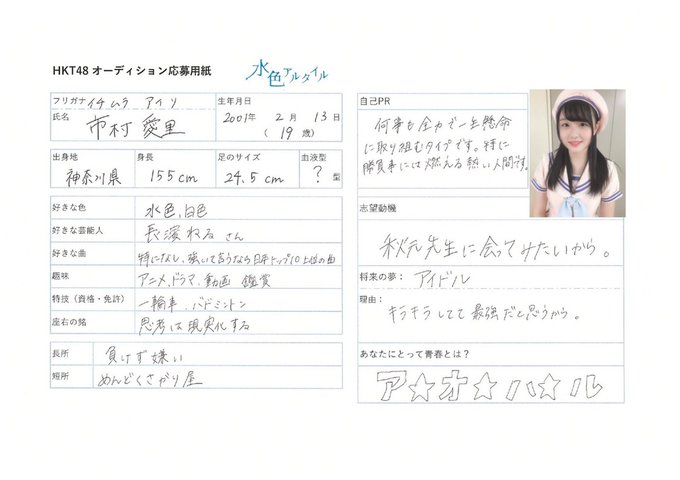 HKT48 オーディション応募用紙
水色アルタイル
フリガナ イチムラ アイリ
氏名 市村 愛里
生年月日
2001年 2月 13日
( 19 歳)
出身地 神奈川県
身長 155cm
足のサイズ 24.5cm
血液型 ? 型
好きな色 水色、白色
好きな芸能人 長濱ねるさん
好きな曲 特になし、強いて言うなら日本トップ10上位の曲
趣味 アニメ、ドラマ、動画 鑑賞
特技(資格・免許) 一輪車、バドミントン
座右の銘 思考は現実化する
長所 負けず嫌い
短所 めんどくさがり屋
自己PR
何事も全力で一生懸命
に取り組むタイプです。特に
勝負事には燃える熱い人間です。
志望動機
秋元先生に会ってみたいから。
将来の夢: アイドル
理由:
キラキラしてて最強だと思うから。
あなたにとって青春とは?
ア☆オ☆ハ☆ル